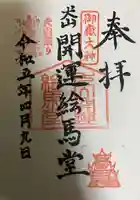 奉拝
御嶽大神
開運絵馬堂
令和五年四月九日